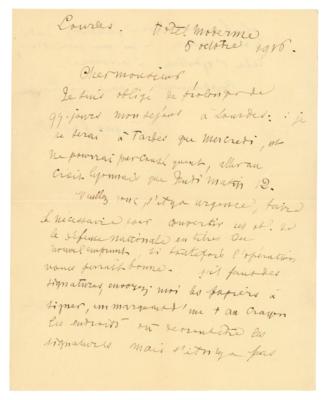 Lourdes. Hotel Moderne
8 octobre 1916.
Cher monsieur
Je suis obligé de prolonger de
qq. jours mon séjour à Lourdes : je
ne serai à Tarbes que mercredi, et
ne pourrai par conséquent, aller au
Crédit Lyonnais que Jeudi matin 12.
Veuillez vous, s'il y a urgence, faire
le nécessaire pour convertir
la défense nationale en titres du
nouvel emprunt, si toutefois l'opération
vous paraît bonne. s'il faut des
signatures envoyez moi les papiers à
signer, en marquant d'une + au crayon
les endroits où doivent être les
signatures mais s'il n'y a pas